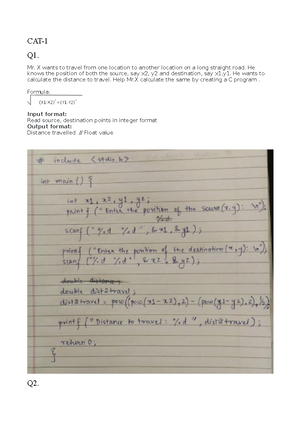 CAT-1
Q1.
Mr. X wants to travel from one location to another location on a long straight road. He
knows the position of both the source, say x2, y2 and destination, say x1,y1. He wants to
calculate the distance to travel. Help Mr.X calculate the same by creating a C program .
Formula:
√ (X1-X2)²+(Y1-Y2)²
Input format:
Read source, destination points in integer format
Output format:
Distance travelled // Float value
# include <stdio.h>
int main() {
int x1, x2, y1, y2;
printf ("Enter the position of the source(x,y): \n");
scanf ("%d %d", &x1, &y1);
printf ("Enter the position of the destination(x,y): \n");
scanf ("%d %d", &x2, &y2);
double distance;
double dist2travel;
dist2travel = pow((pow(x1-x2),2) - (pow(y1-y2),2),
printf ("Distance to travel: %d", dist2travel);
return 0;
}
Q2.